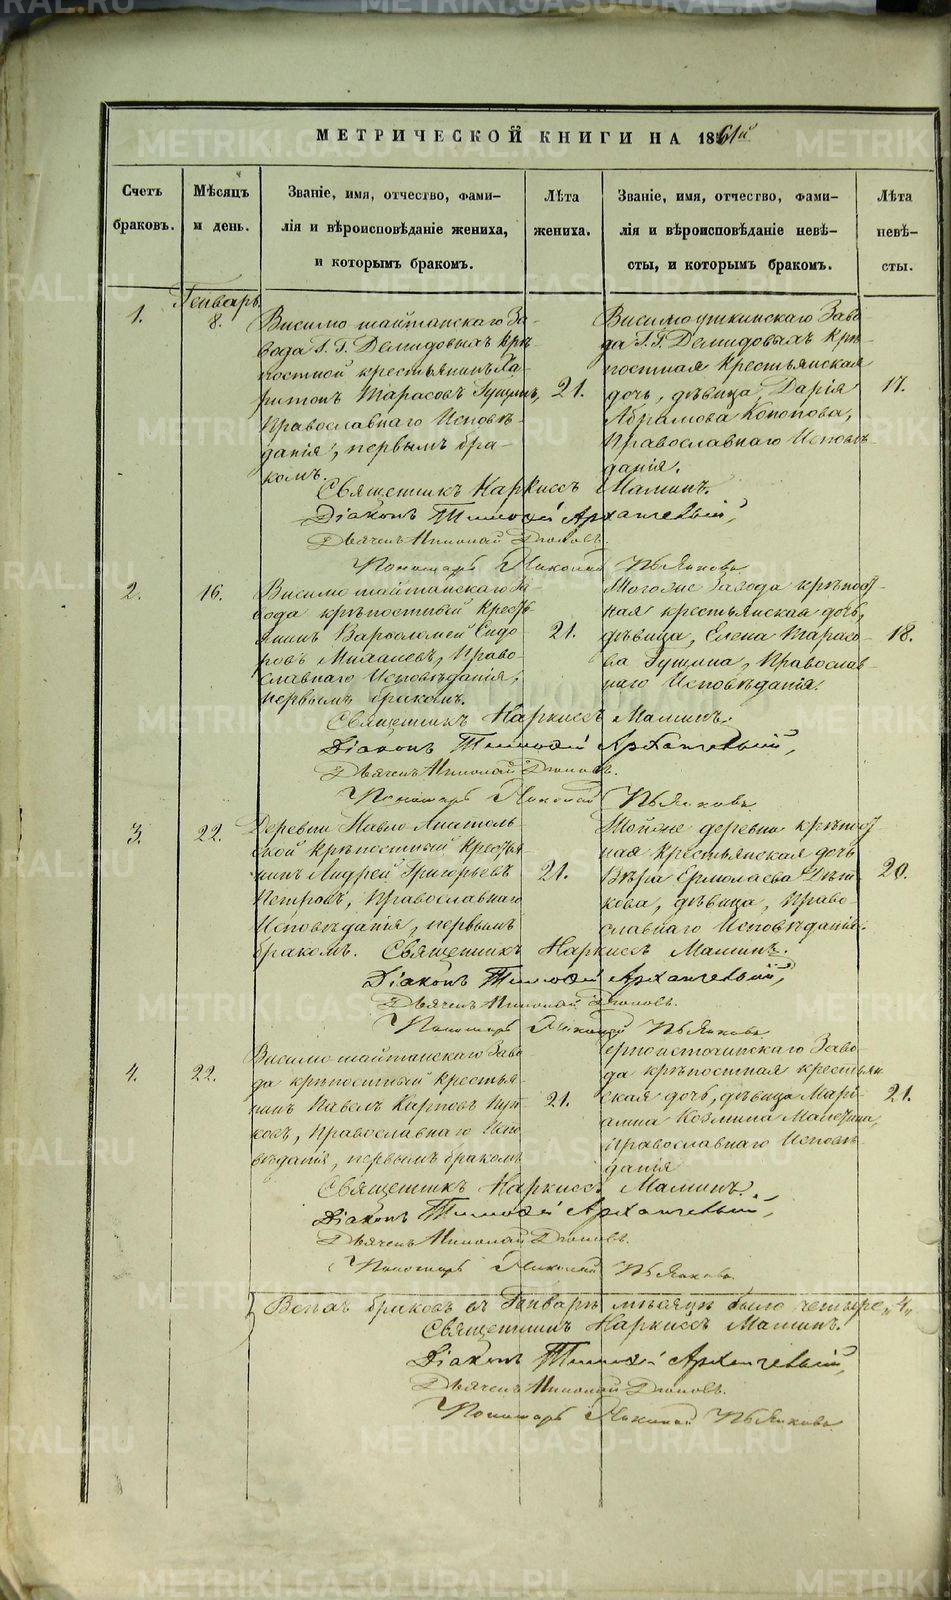 МЕТРИЧЕСКОЙ КНИГИ НА 1861й
Счетъ браковъ.
Мѣсяцъ и день.
Званіе, имя, отчество, фами-
лія и вѣроисповѣданіе жениха,
и которымъ бракомъ.
Лѣта жениха.
Званіе, имя, отчество, фами-
лія и вѣроисповѣданіе невѣ-
сты, и которымъ бракомъ.
Лѣта невѣ-
сты.
1.
Генварь
8.
Висимо шайтанскаго За-
вода Г. Г. Демидовыхъ крѣ
постной крестьянинъ Ха-
ритонъ Тарасовъ Гущинъ,
Православнаго Исповѣ-
данія, первымъ бра-
комъ.
21.
Висимоуткинскаго Заво-
да Г. Г. Демидовыхъ крѣ-
постная крестьянская
дочь, дѣвица, Дарія
Абрамова Кононова,
Православнаго Исповѣ-
данія.
17.
Священникъ Наркиссъ Маминъ.
Діаконъ Тимофей Архангельскій,
Дьячекъ Николай Дюковъ.
Пономарь Николай
2.
16.
Висимо шайтанскаго За-
вода крѣпостный кресть
янинъ Варѳоломей Сидо
ровъ Михалевъ, Право-
славнаго Исповѣданія,
первымъ бракомъ.
21.
Тогоже Завода крѣпост-
ная крестьянская дочь,
дѣвица, Елена Тарасо-
ва Гущина, Православ-
наго Исповѣданія.
18.
Священникъ Наркиссъ Маминъ.
Діаконъ Тимофей Архангельскій,
Дьячекъ Николай Дюковъ.
Пономарь Николай
3.
22.
Деревни Павло Анатоль
ской крѣпостный кресть
нинъ Андрей Григорьевъ
Петровъ, Православнаго
Исповѣданія, первымъ
бракомъ.
21.
Тойже деревни крѣпост
ная крестьянская дочь
Вѣра Ермолаева
кова, дѣвица, Право-
славнаго Исповѣданія.
20.
Священникъ Наркиссъ Маминъ.
Діаконъ Тимофей Архангельскій,
Дьячекъ Николай Дюковъ.
Пономарь Николай
4.
22.
Висимо шайтанскаго Заво-
да крѣпостный крестья-
нинъ Павелъ Карповъ
ковъ, Православнаго Испо
вѣданія, первымъ бракомъ
21.
Черноисточинскаго Заво-
да крѣпостная крестьян
ская дочь, дѣвица Марі-
анна Козмина
Православнаго Исповѣ
данія
21.
Священникъ Наркиссъ Маминъ.
Діаконъ Тимофей Архангельскій,
Дьячекъ Николай Дюковъ.
Пономарь Николай
Всѣхъ браковъ въ Генварѣ мѣсяцѣ было четыре „4„
Священникъ Наркиссъ Маминъ.
Діаконъ Тимофей Архангельскій,
Дьячекъ Николай Дюковъ.
Пономарь Николай
METRIKI.GASO-URAL.RU